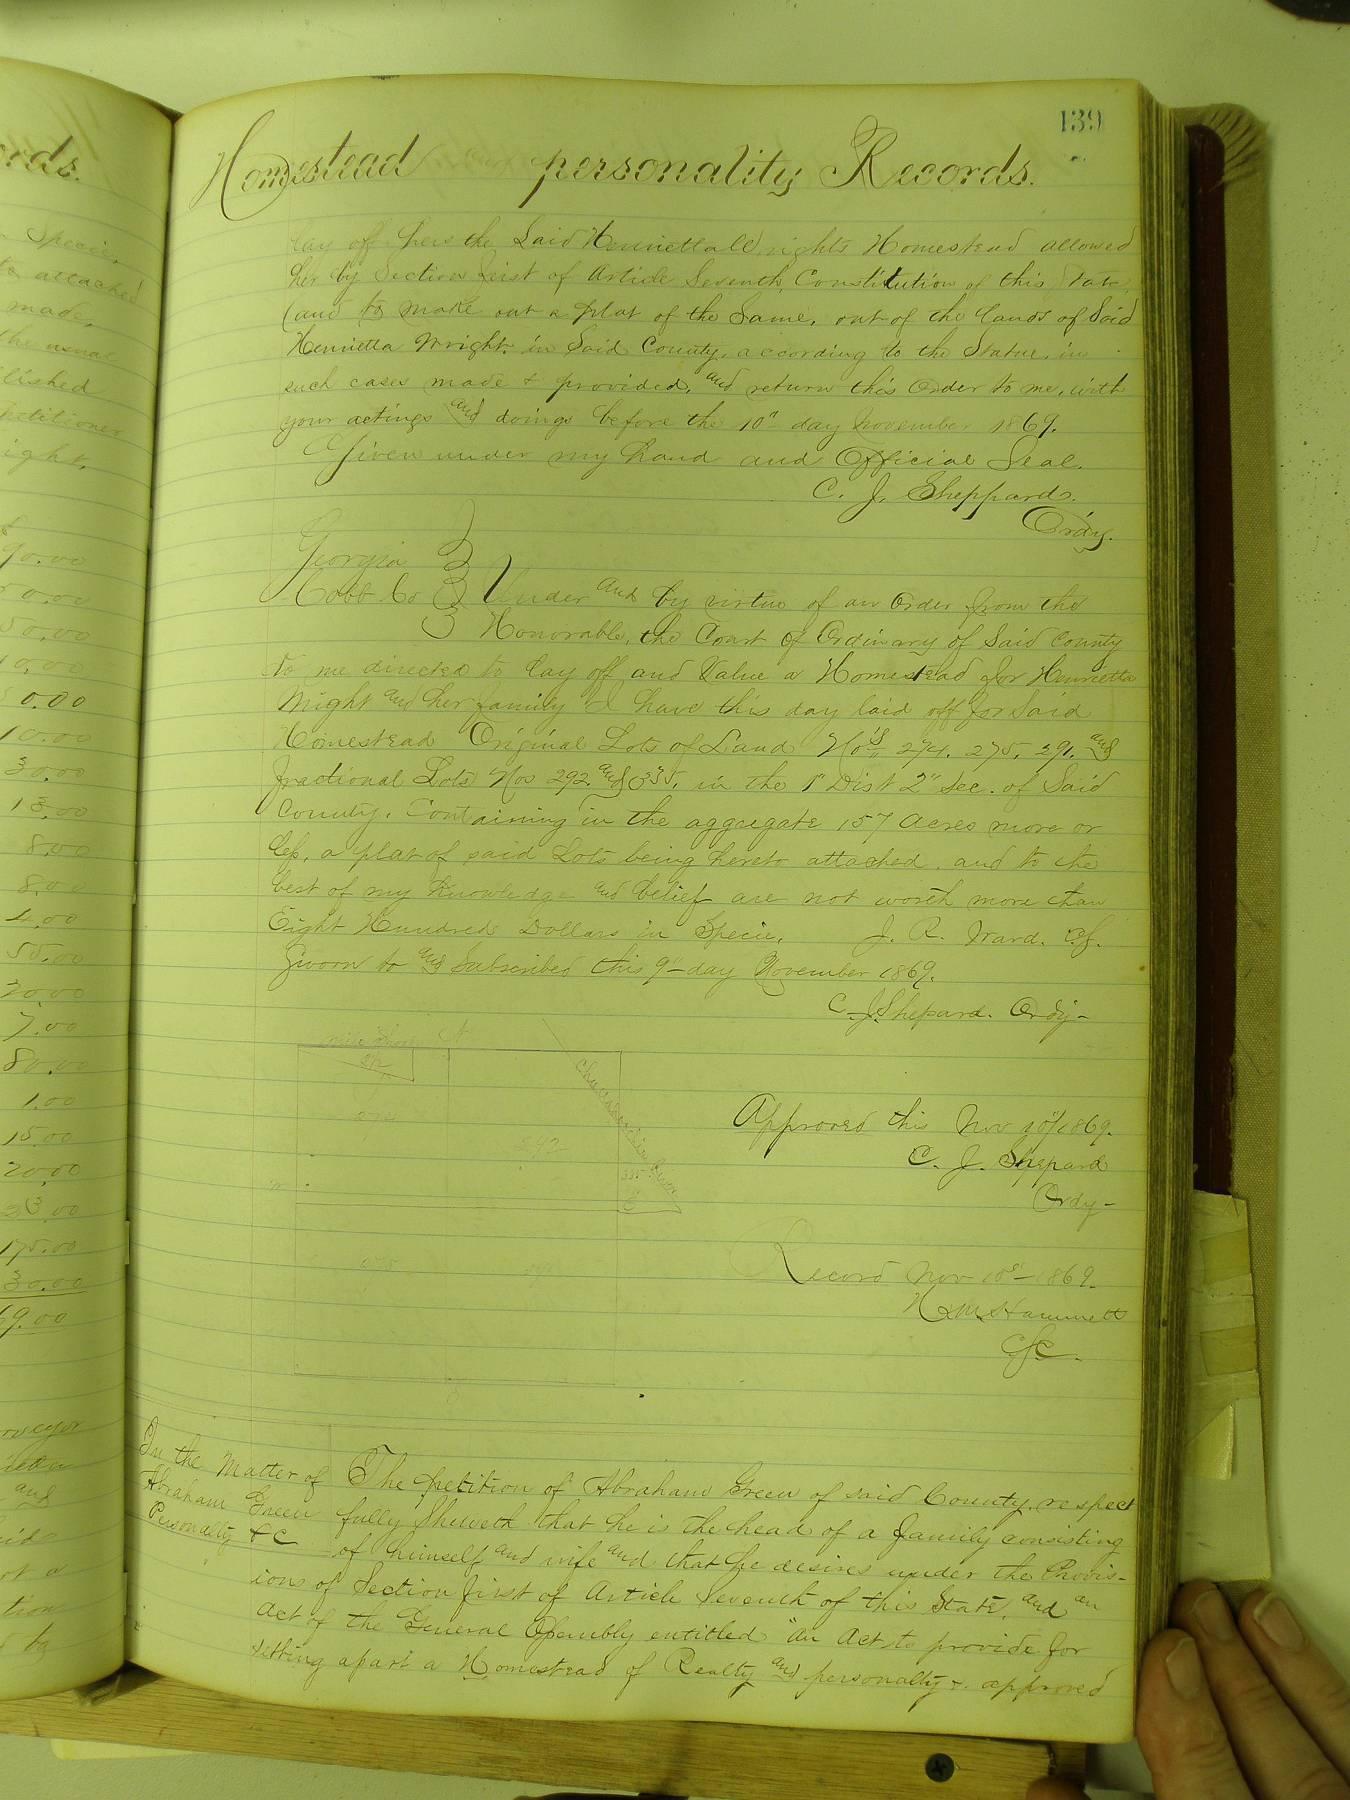 ords.
Specie,
attached
made,
the usual
lished
petitioner
ight.
90.00
50.00
0.00
10.00
30.00
13.00
8.00
8.00
4.00
55.00
20.00
7.00
80.00
1.00
15.00
20.00
175.00
30.00
69.00
and
tion
by
139
Homestead personality Records.
lay off hers the Said Henrietta Wrights Homestead allowed
her by Section first of Article Seventh, Constitution of this State
(and to make out a plat of the Same, out of the lands of Said
Henrietta Wright. in Said County, according to the Statue, in
such cases made & provided, and return this Order to me, with
your actings and doings before the 10" day November 1869.
Given under my hand and Official Seal.
C. J. Sheppards.
Ordy.
Georgia
Cobb Co Under and by virtue of an Order from the
Honorable, the Court of Ordinary of Said County
to me directed to lay off and Value a Homestead for Henrietta
Wright and her family I have this day laid off for Said
Homestead Original Lots of Land No's 274. 275. 291. and
fractional Lots Nos 292. and 335. in the 1" Dist 2" Sec. of Said
County. Containing in the aggregate 157 Acres more or
less, a plat of said Lots being hereto attached. and to the
best of my Knowledge and belief are not worth more than
Eight Hundred Dollars in Specie. J. R. Ward. C.S.
Sworn to and Subscribed this 9" day November 1869.
C. J. Shepard. Ordy-
N
Chattahoochee River
292
335
E
275
Approved this Nov 10th 1869.
C. J. Shepard
Ordy-
Record Nov 10th 1869.
N. M. Hammett
CSC.
In the Matter of
Abraham Green
Personalty &C
The petition of Abraham Green of said County, respect
fully Sheweth that he is the head of a family consisting
of himself and wife and that he desires under the Provis-
ions of Section first of Article Seventh of this State, and an
Act of the General Assembly entitled "An Act to provide for
setting apart a Homestead of Realty and personalty &. approved